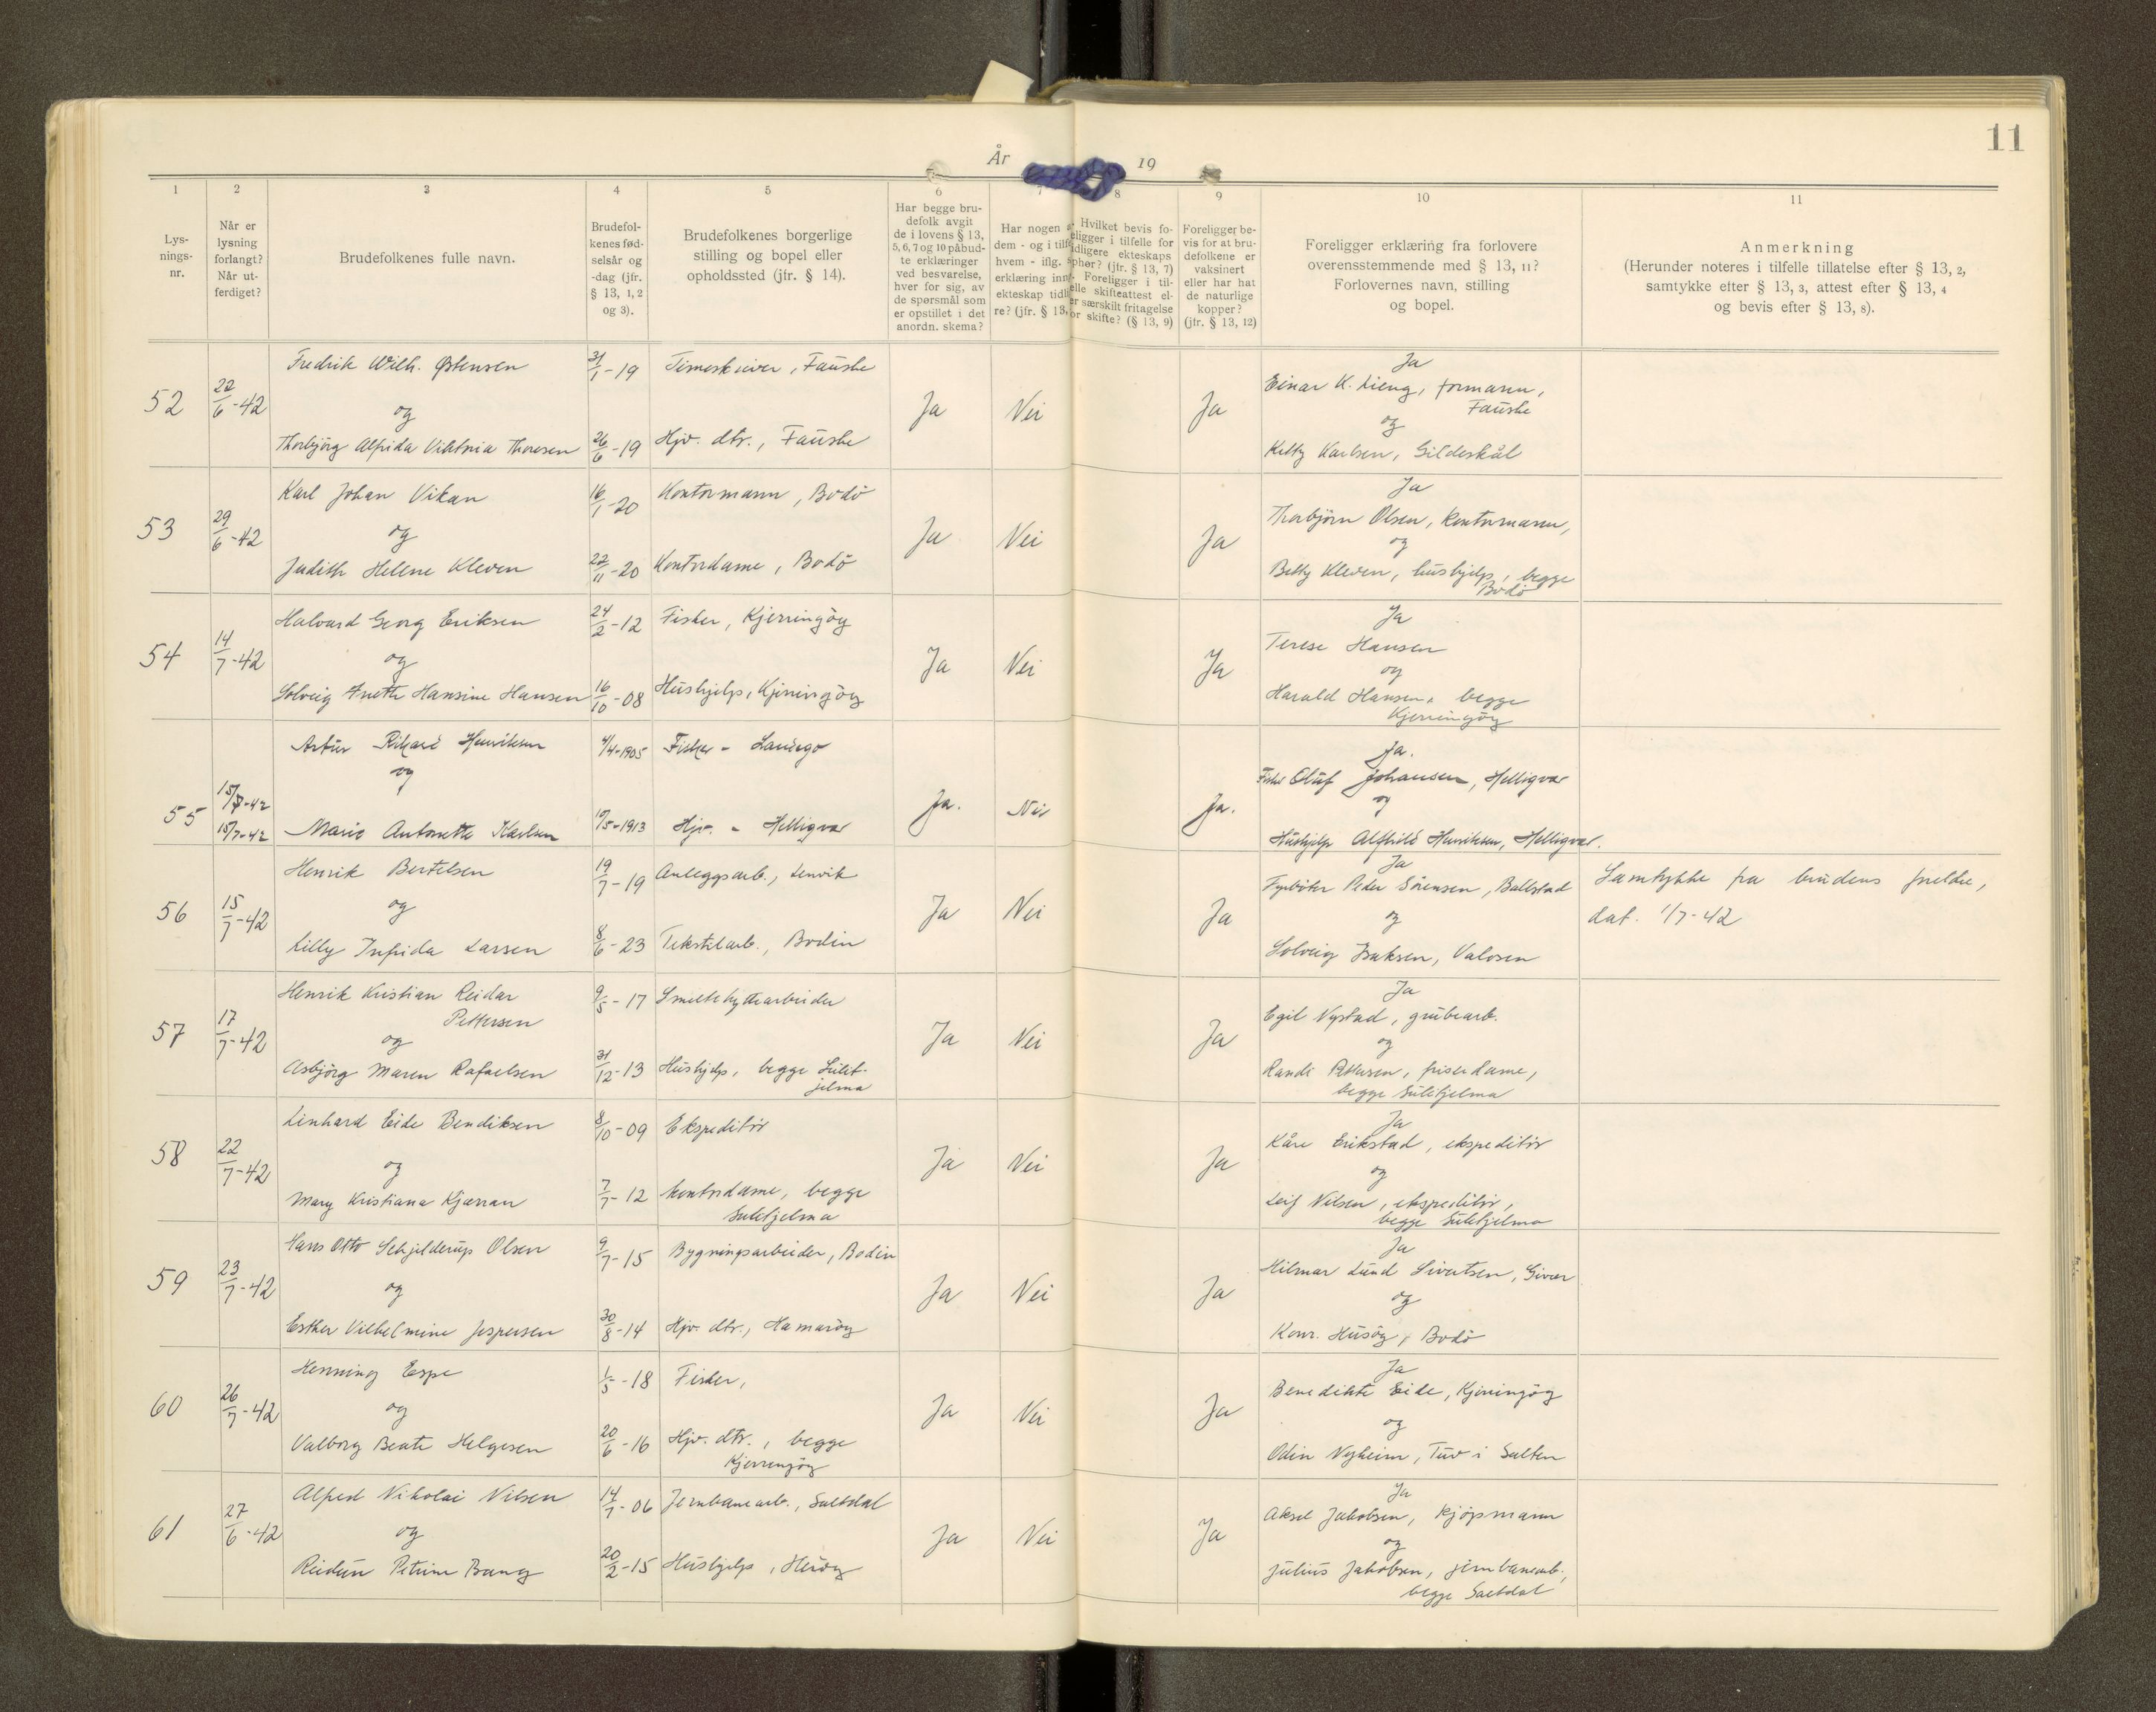 11
År 19
1 2 3 4 5 6 7 8 9 10 11
Lysnings-nr.
Når er lysning forlangt? Når utferdiget?
Brudefolkenes fulle navn.
Brudefolkenes fødselsår og -dag (jfr. § 13, 1, 2 og 3).
Brudefolkenes borgerlige stilling og bopel eller opholdssted (jfr. § 14).
Har begge brudefolk avgit de i lovens § 13, 5, 6, 7 og 10 påbudte erklæringer ved besvarelse, hver for sig, av de spørsmål som er opstillet i det anordn. skema?
Har nogen a
dem - og i tilf
hvem - iflg. s
erklæring inng
ekteskap tidli
re? (jfr. § 13,
Hvilket bevis fo-
eligger i tilfelle for
idligere ekteskaps
phør? (jfr. § 13, 7)
- Foreligger i til-
elle skifteattest el-
er særskilt fritagelse
or skifte? (§ 13, 9)
Foreligger bevis for at brudefolkene er vaksinert eller har hat de naturlige kopper? (jfr. § 13, 12)
Foreligger erklæring fra forlovere overensstemmende med § 13, 11? Forlovernes navn, stilling og bopel.
Anmerkning
(Herunder noteres i tilfelle tillatelse efter § 13, 2, samtykke efter § 13, 3, attest efter § 13, 4 og bevis efter § 13, 8).
52 22/6-42 Fredrik Wilh. Østensen 31/1-19 Timeskriver, Fauske
og Ja Nei Ja
Thorbjörg Alfrida Viktoria Thoresen 26/6-19 Hjv. dtr., Fauske
Ja
Einar K. Lieng, formann,
Fauske
og
Ketty Karlsen, Gildeskål
53 29/6-42 Karl Johan Vikan 16/1-20 Kontormann, Bodö
og Ja Nei Ja
Judith Helene Kleven 22/11-20 Kontordame, Bodö
Ja
Thorbjörn Olsen, kontormann,
og
Betty Kleven, hushjelp, begge
Bodö
54 14/7-42 Halvard Georg Eriksen 24/2-12 Fisker, Kjerringöy
og Ja Nei Ja
Solveig Anette Hansine Hansen 16/10-08 Hushjelp, Kjerringöy
Ja
Terese Hansen
og
Harald Hansen, begge
Kjerringöy
55 15/7-42 15/7-42 Artur Rikard Henriksen 4/4-1905 Fisker - Landego
og Ja. Nei Ja.
Marie Antonette Karlsen 10/5-1913 Hjv. - Helligvær
Ja.
Fisker Oluf Johansen, Helligvær
og
Hushjelp Alfhild Henriksen, Helligvær.
56 15/7-42 Henrik Bertelsen 19/7-19 Anleggsarb., Lenvik
og Ja Nei Ja
Lilly Infrida Larsen 8/6-23 Tekstilarb., Bodin
Ja
Fyrböter Peder Sörensen, Ballstad
og
Solveig Isaksen, Valosen
Samtykke fra brudens foreldre,
dat. 1/7-42
57 17/7-42 Henrik Kristian Reidar
Pettersen 9/5-17 Smeltehyttearbeider
og Ja Nei Ja
Asbjörg Maren Rafaelsen 31/12-13 Hushjelp, begge Sulit-
jelma
Ja
Egil Nystad, grubearb.
og
Randi Pettersen, friserdame,
begge Sulitjelma
58 22/7-42 Linhard Eide Bendiksen 8/10-09 Ekspeditör
og Ja Nei Ja
Mary Kristiana Kjærran 7/7-12 Kontordame, begge
Sulitjelma
Ja
Kåre Erikstad, ekspeditör
og
Leif Nilsen, ekspeditör,
begge Sulitjelma
59 23/7-42 Hans Otto Schjelderup Olsen 9/7-15 Bygningsarbeider, Bodin
og Ja Nei Ja
Esther Vilhelmine Jespersen 30/8-14 Hjv. dtr., Hamaröy
Ja
Hilmar Lund Sivertsen, Givær
og
Konr. Husöy, Bodö
60 26/7-42 Henning Espe 1/5-18 Fisker,
og Ja Nei Ja
Valborg Beate Helgesen 20/6-16 Hjv. dtr., begge
Kjerringöy
Ja
Benedikte Eide, Kjerringöy
og
Odin Nyheim, Tuv i Salten
61 27/6-42 Alfred Nikolai Nilsen 14/7-06 Jernbanearb., Saltdal
og Ja Nei Ja
Reidun Petrine Bang 20/2-15 Hushjelp, Heröy
Ja
Aksel Jakobsen, kjöpmann
og
Julius Jakobsen, jernbanearb.,
begge Saltdal